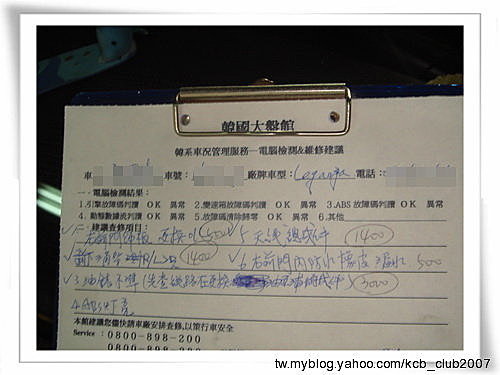 韓國大盤館
韓系車況管理服務—電腦檢測&維修建議
車 車號: 廠牌車型: Leganza 電話:
一.電腦檢測結果:
1.引擎故障碼判讀 OK 異常 2.變速箱故障碼判讀 OK 異常 3.ABS故障碼判讀 OK 異常
4.動態數據流判讀 OK 異常 5.故障碼清除歸零 OK 異常 6.其他
二.建議查修項目:
右前門飾板 更換 1500 5.天線總成件 1400
1400 6.右前門內防水橡皮漏水 500
3.油錶不準(先查線路在更換 3000
4.ABS灯亮
本館建議您儘快請車廠安排查修,以策行車安全
Service : 0800-898-200
0800-898
tw.myblog.yahoo.com/kcb_club2007